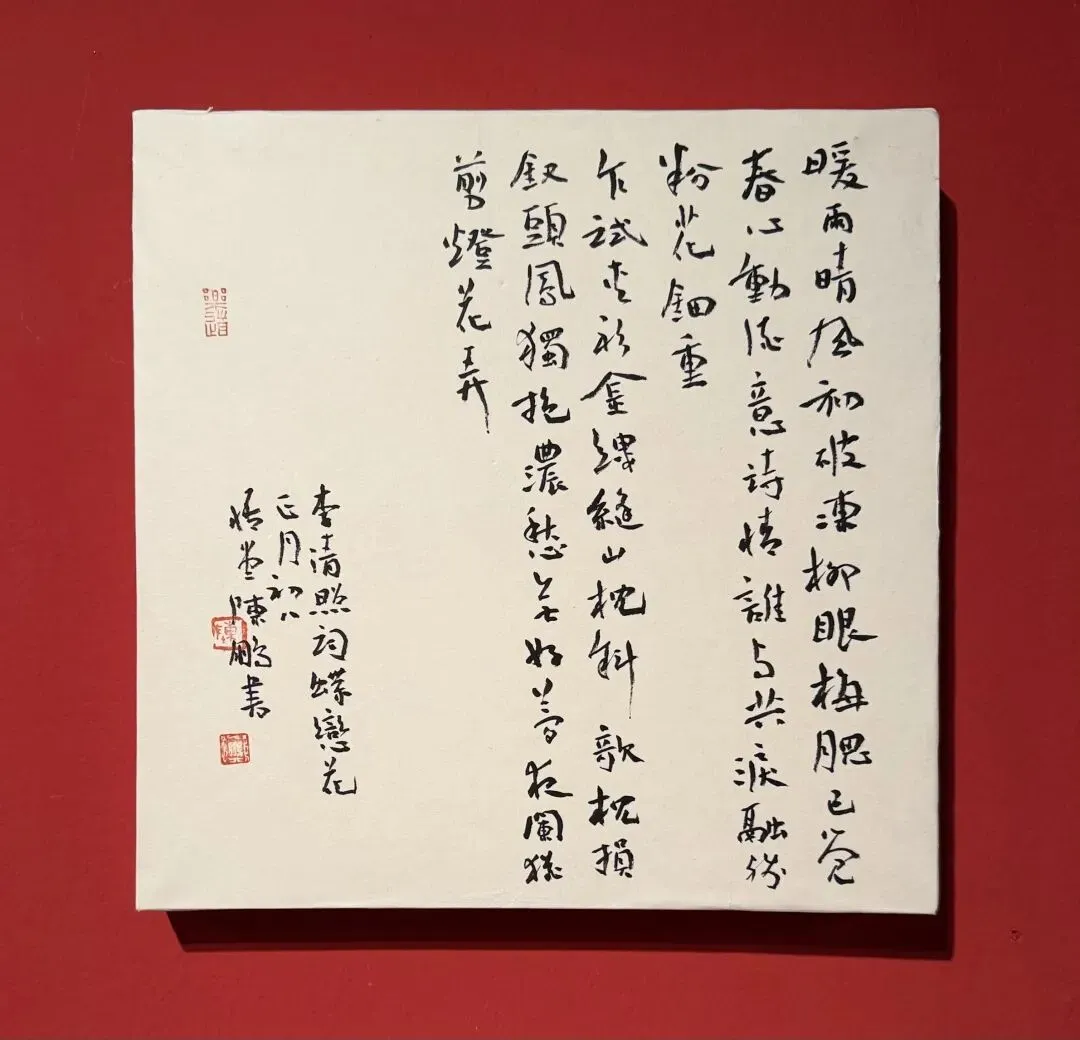 暖雨晴風初破凍柳眼梅腮已覺
春心動酒意詩情誰与共淚融殘
粉花鈿重
乍試夾衫金縷縫山枕斜欹枕損
釵頭鳳獨抱濃愁無好夢夜闌猶
剪燈花弄
李清照詞蝶戀花
正月初八
堂陳鵬書
陳